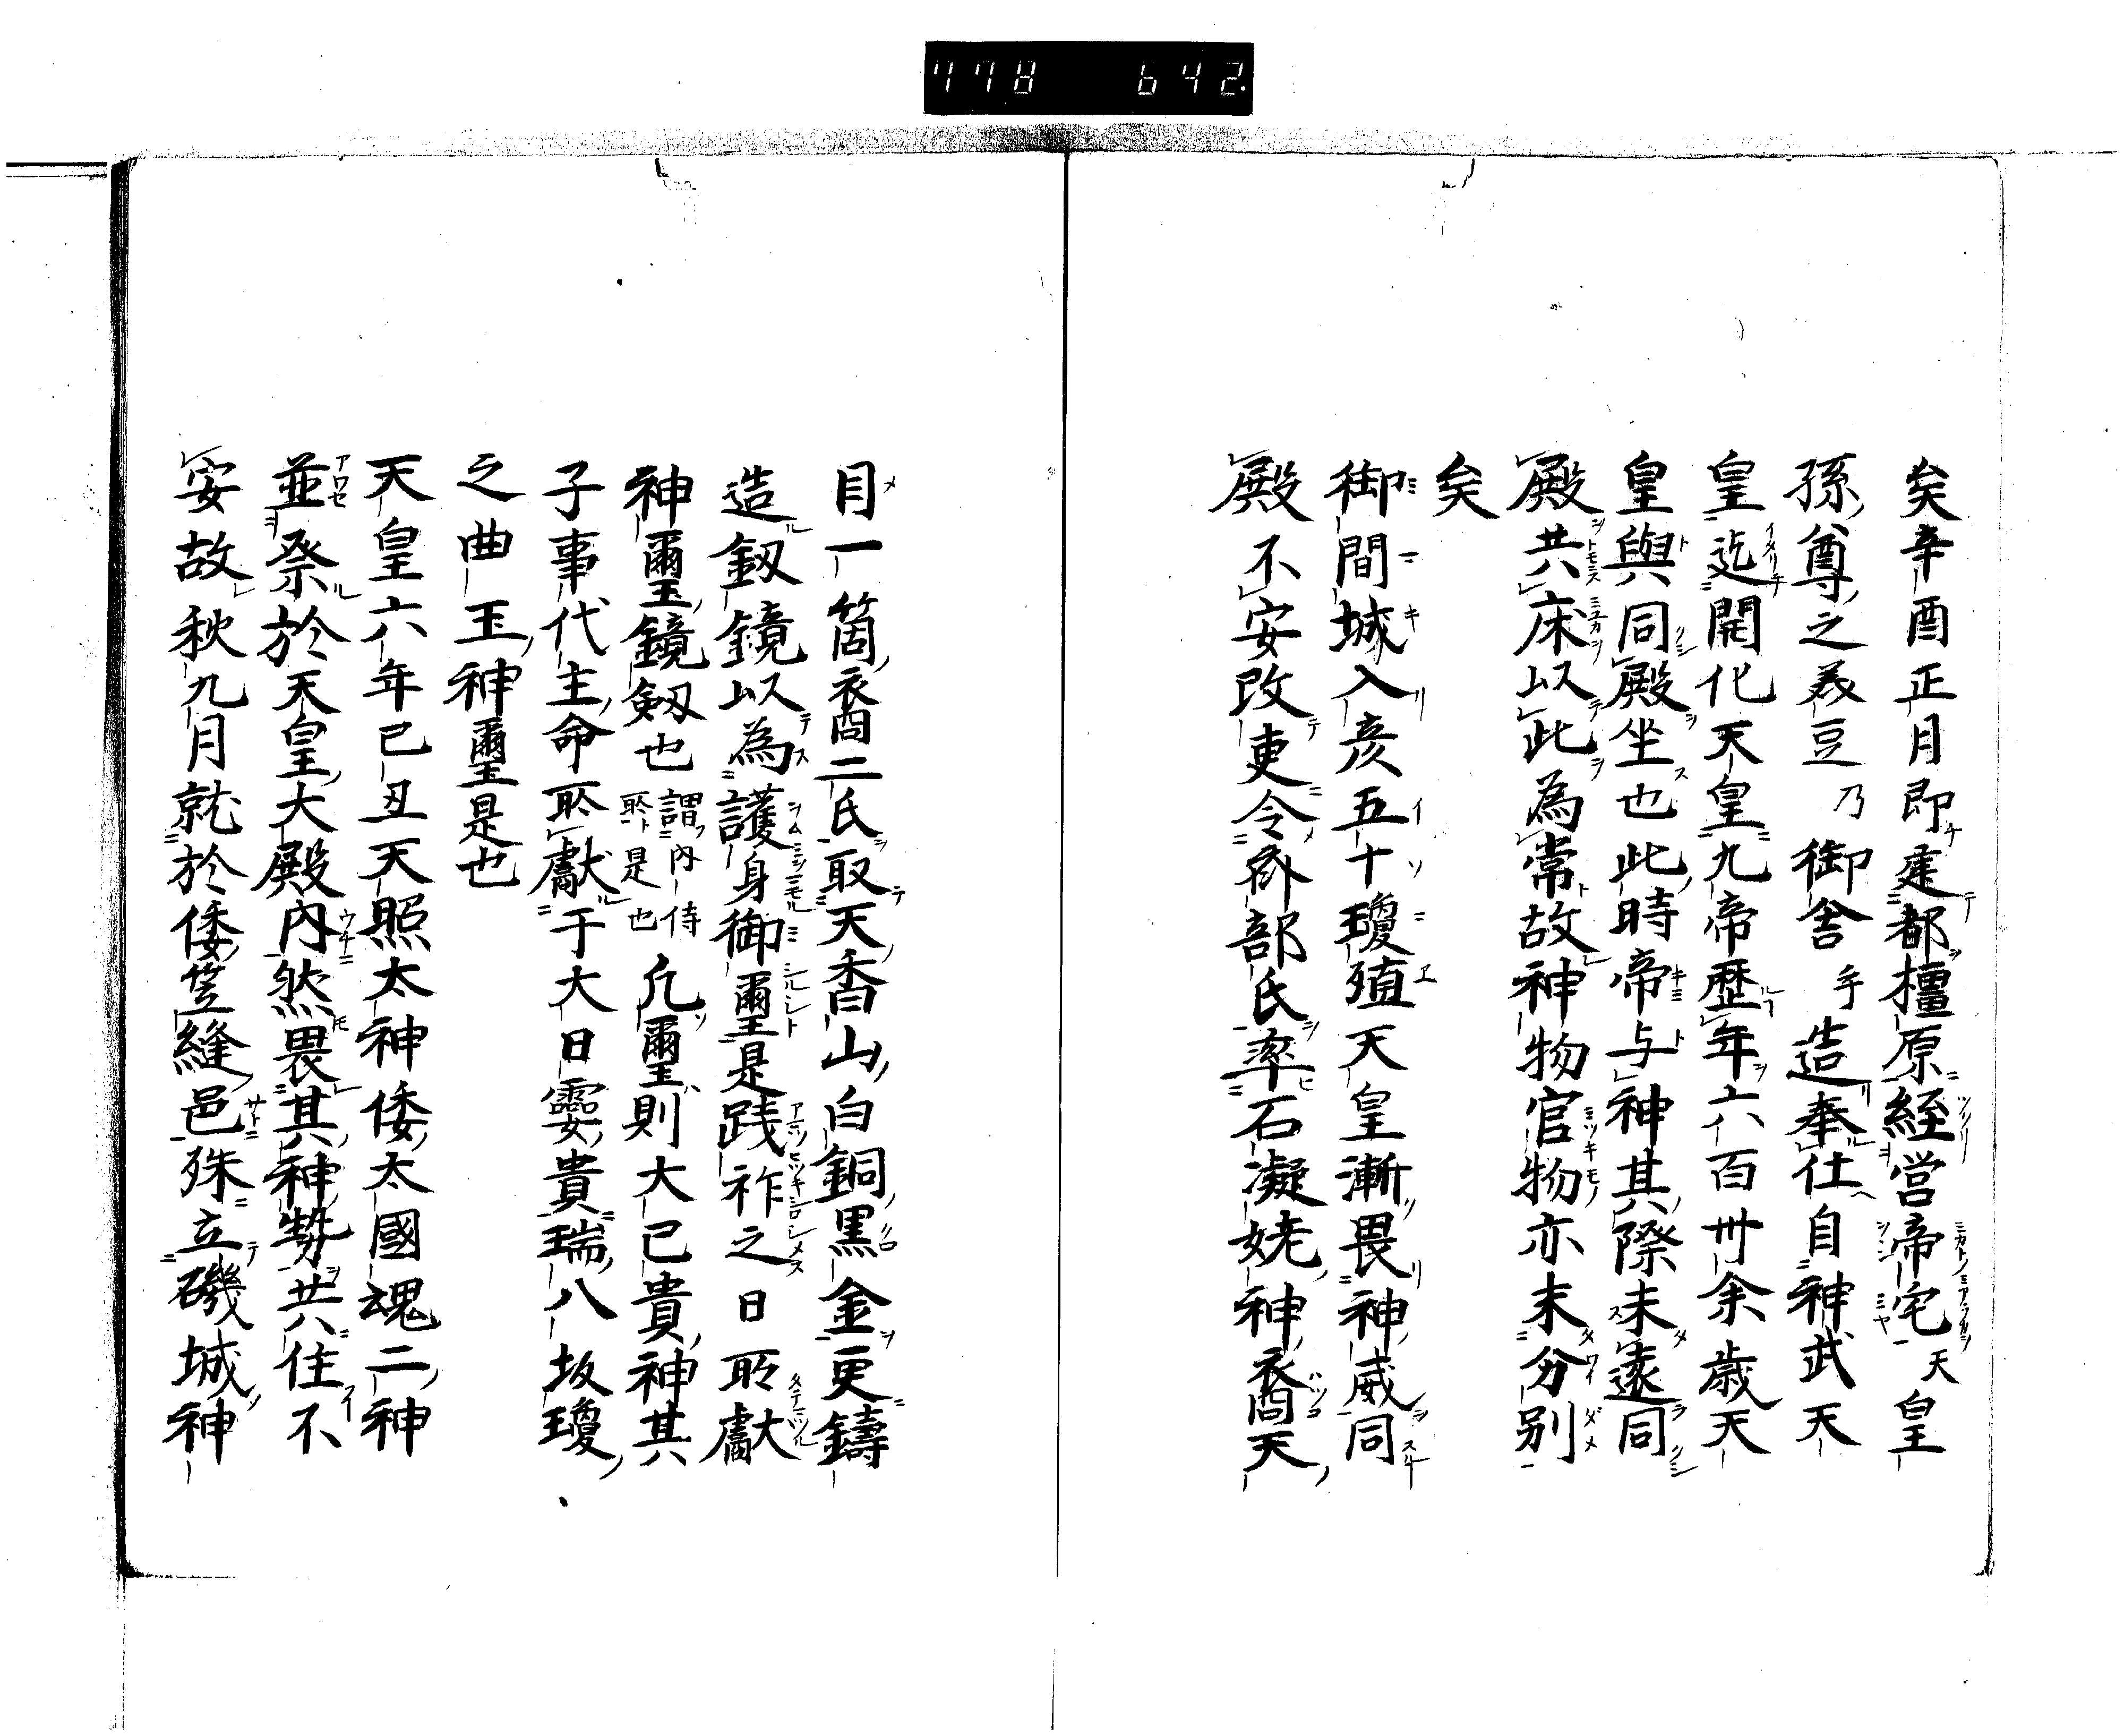 778 642
矣辛酉正月即建都橿原経営帝宅天皇
孫尊之美豆乃御舎乎造奉仕自神武天
皇迄開化天皇九帝歴年六百卅余歳天
皇與同殿坐也此時帝与神其際未遠同
殿共床以此為常故神物官物亦未分別
矣
御間城入彦五十瓊殖天皇漸畏神威同
殿不安改更令斎部氏率石凝姥神裔天
目一箇裔二氏取天香山白銅黒金更鋳
造劔鏡以為護身御璽是践祚之日所獻
神璽玉鏡劔也謂内侍所是也凢璽則大己貴神其
子事代主命所獻于大日孁貴瑞八坂瓊
之曲玉神璽是也
天皇六年己丑天照太神倭太國魂二神
並祭於天皇大殿内然畏其神勢共住不
安故秋九月就於倭笠縫邑殊立磯城神